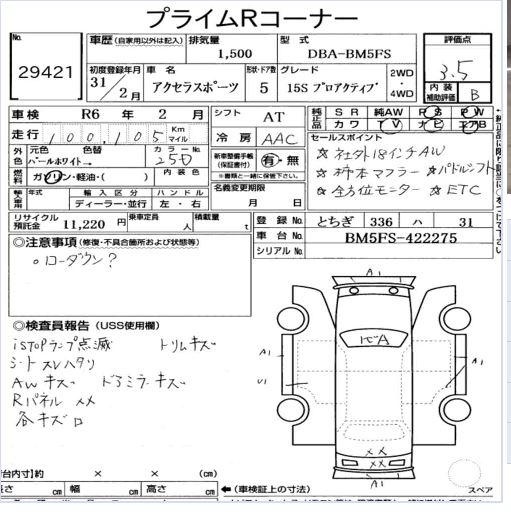 プライムRコーナー
No.
29421
車歴 (自家用以外は記入)
排気量
1,500
型式
DBA-BM5FS
評価点
3.5
内装補助評価 B
初度登録年月
31/2月
車名
アクセラスポーツ
形状・ドア数
5
グレード
15S プロアクティブ
2WD
4WD
車検 R6年2月
シフト AT
純正品 SR サンルーフ
純AW PS PW
カワ TV ナビ エアB
走行 100,105 Km マイル
冷房 AAC
セールスポイント
☆社外18インチAW
☆柿本マフラー ☆パドルシフト
☆全方位モニター ☆ETC
外色 元色 色替
パールホワイト→
カラーNo. 25D
新車整備手帳(保証書付) 有・無
※書類と一緒に保管下さい。
燃料 ガソリン・軽油・( )
内装色
名義変更期限
月 日
輸入車 年式 輸入区分 ハンドル
ディーラー・並行 左・右
リサイクル預託金 11,220 円
乗車定員 人
積載量 t
登録No. とちぎ 336 ハ 31
車台No. BM5FS-422275
シリアルNo.
◎注意事項 (修復・不具合箇所および状態等)
○ローダウン?
◎検査員報告 (USS使用欄)
iSTOPランプ点滅 トリムキズ
シートスレハタリ
AWキズ ドアミラーキズ
Rパネル XX
各キズロ
A1
A1
A1
U1
XX
XX
A1
スペア
荷台内寸 約 × × (cm)
長さ cm 幅 cm 高さ cm
←(車検証上の寸法)